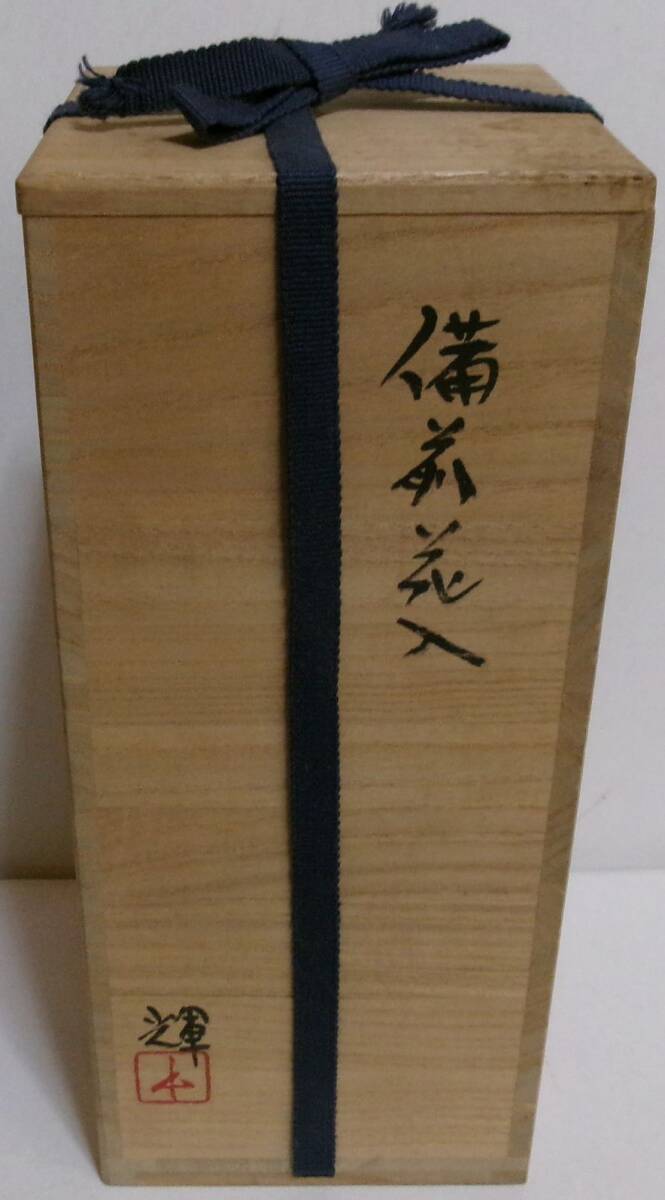 備前花入
輝